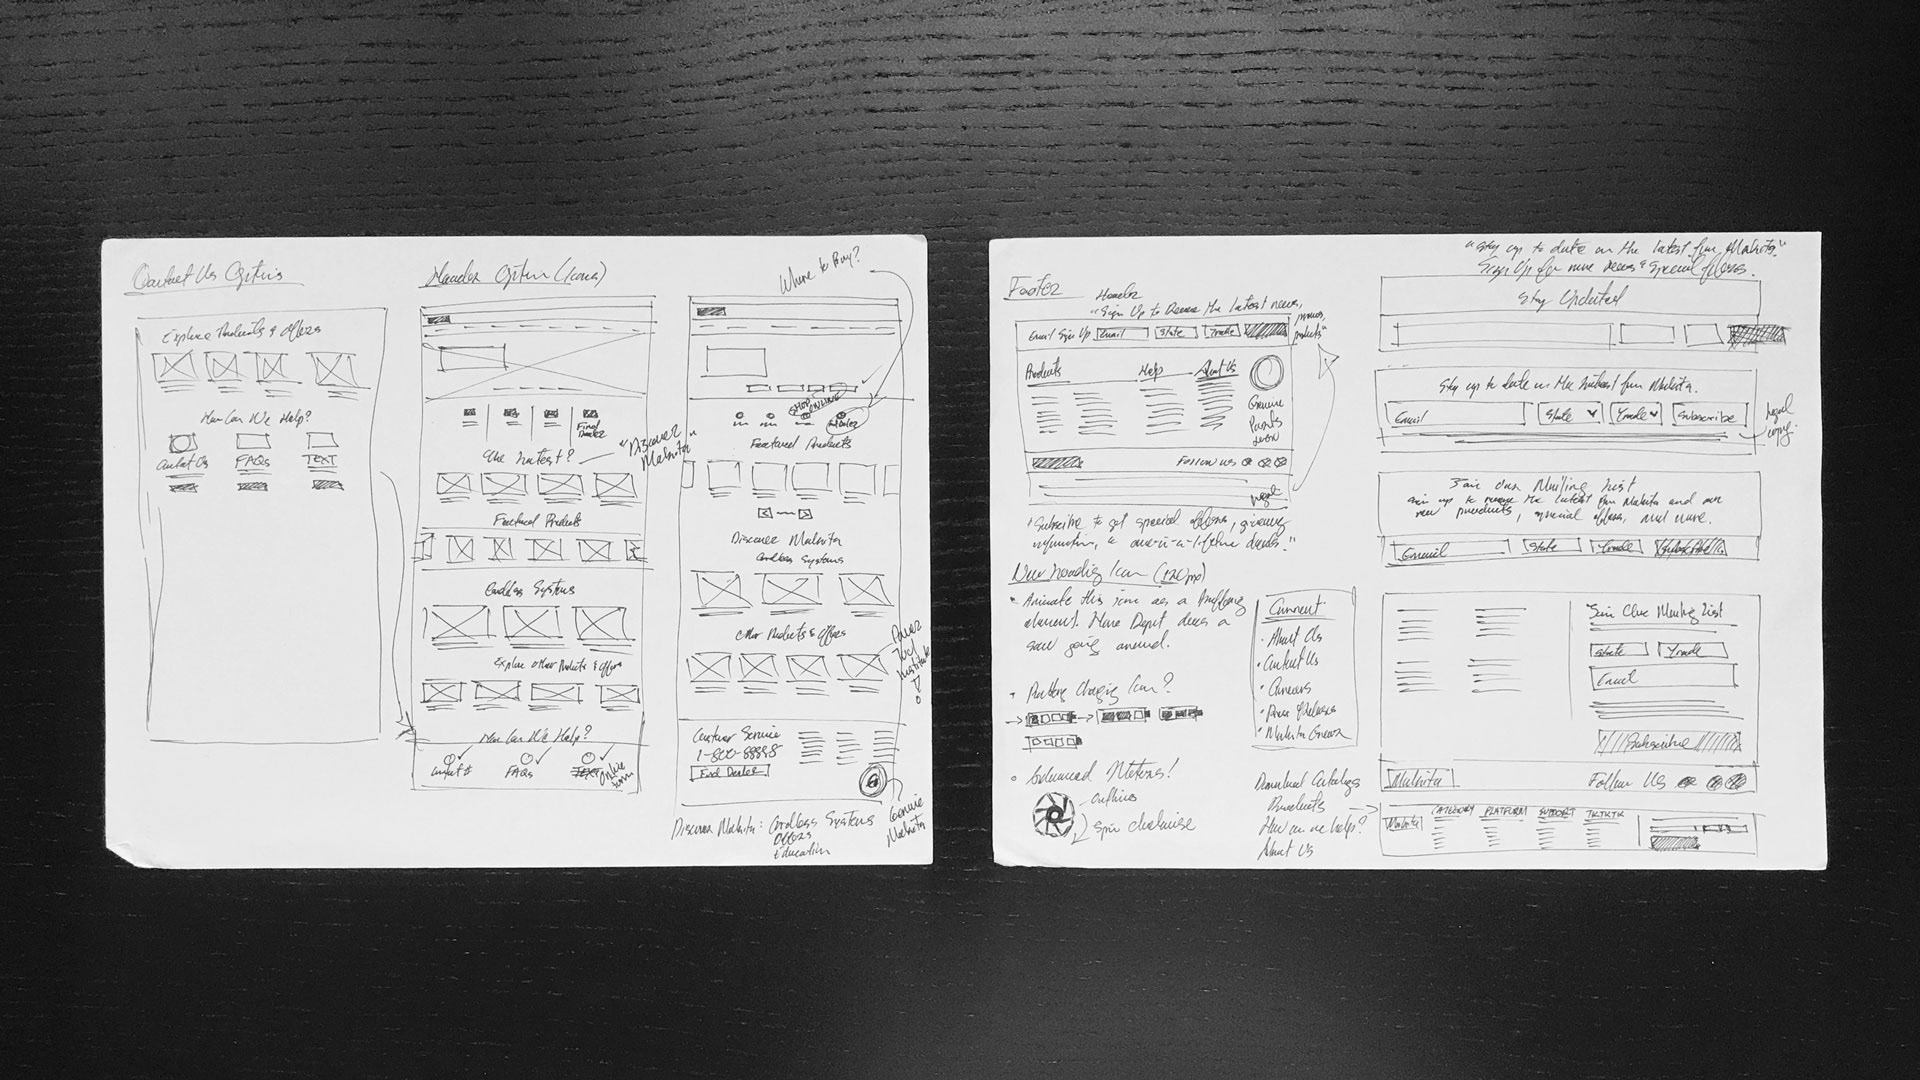 Contact Us Options
Explore Products & Offers
How Can We Help?
Contact Us
FAQs
TEXT
Header Option (Icons)
Find
Dealer
The Latest?
"Discover
Makita"
Featured Products
Cordless Systems
Explore Other Products & Offers
How Can We Help?
Contact
FAQs
TEXT
Online
Form
Where to Buy?
SHOP
ONLINE
Dealer
Featured Products
Discover Makita
Cordless Systems
Other Products & Offers
Power
Tool
Institute
Customer Service
1-800-
Find Dealer
Genuine
Makita
Discover Makita: Cordless Systems
Offers
Education
Footer
Header
"Sign Up to Receive the latest news,
promos,
products"
Email Sign Up
Email
State
Trade
Products
Help
About Us
Genuine
Parts
Follow Us
legal
"Subscribe to get special offers, giveaway
information, & once-in-a-lifetime deals."
New Loading Icon (120px)
Animate this icon as a buffering
element. Home Depot does a
saw going around.
Battery Charging Icon?
Advanced Motors!
Outlines
Spin clockwise
Connect
About Us
Contact Us
Careers
Press Releases
Makita
Download Catalogs
Products
How can we help?
About Us
"Stay up to date on the latest from Makita"
Sign Up for more news & special offers.
Stay Updated
Stay up to date on the latest from Makita.
Email
State
Trade
Subscribe
legal
copy.
Join Our Mailing List
Sign up to receive the latest from Makita and our
new products, special offers, and more.
Email
State
Trade
Subscribe
Join Our Mailing List
State
Trade
Email
Subscribe
Makita
Follow Us
Makita
CATEGORY
PLATFORM
SUPPORT
TKTKTK